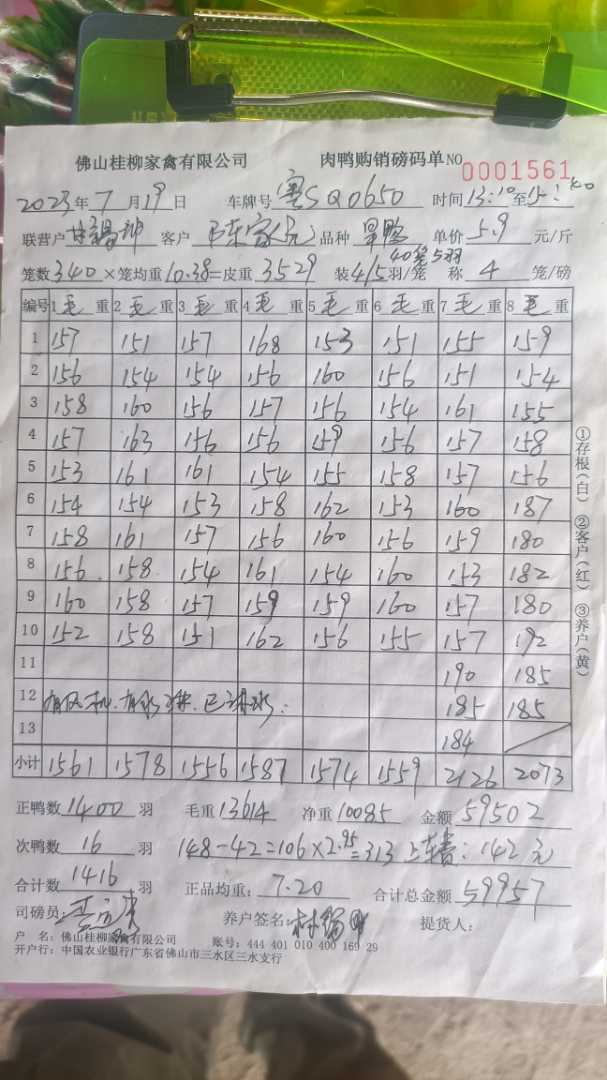 佛山桂柳家禽有限公司 肉鸭购销磅码单 NO 0001561
2023年7月19日 车牌号 粤SQ0650 时间13:10至15:
联营户 客户 陈家 品种 旱鸭 单价 5.9 元/斤
40笼5羽
笼数340×笼均重10.38=皮重3529 装4/5羽/笼 称4笼/磅
编号 1毛重 2毛重 3毛重 4毛重 5毛重 6毛重 7毛重 8毛重
1 157 151 157 168 153 151 155 159
2 156 154 154 156 160 156 151 154
3 158 160 156 157 156 154 161 155
4 157 163 156 156 159 156 157 158
5 153 161 161 154 155 158 157 156
6 154 154 153 158 162 153 160 187
7 158 161 157 156 160 156 159 180
8 156 158 154 161 154 160 153 182
9 160 158 157 159 159 160 157 180
10 152 158 151 162 156 155 157 192
11 190 185
12 有风机.有水淋.已淋水. 185 185
13 184
小计 1561 1578 1556 1587 1574 1559 2126 2073
正鸭数1400羽 毛重13614 净重10085 金额59502
次鸭数16羽 148-42=106×2.95=313 上车费:142元
合计数1416羽 正品均重:7.20 合计总金额59957
司磅员: 养户签名: 提货人:
户 名:佛山桂柳家禽有限公司 账号:444 401 010 400 169 29
开户行:中国农业银行广东省佛山市三水区三水支行
①存根(白) ②客户(红) ③养户(黄)